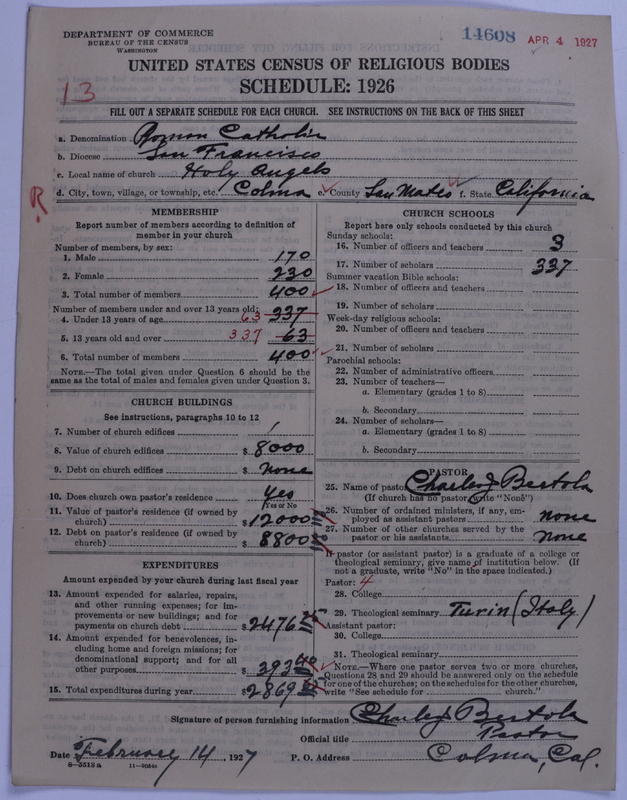 DEPARTMENT OF COMMERCE
BUREAU OF THE CENSUS
WASHINGTON
14608
APR 4 1927
UNITED STATES CENSUS OF RELIGIOUS BODIES
SCHEDULE: 1926
13
FILL OUT A SEPARATE SCHEDULE FOR EACH CHURCH. SEE INSTRUCTIONS ON THE BACK OF THIS SHEET
a. Denomination Roman Catholic
b. Diocese San Francisco
c. Local name of church Holy Angels
R
d. City, town, village, or township, etc. Colma e. County San Mateo f. State California
MEMBERSHIP
Report number of members according to definition of
member in your church
Number of members, by sex:
1. Male 170
2. Female 230
3. Total number of members 400
Number of members under and over 13 years old:
4. Under 13 years of age 63 337
5. 13 years old and over 337 63
6. Total number of members 400
NOTE.—The total given under Question 6 should be the
same as the total of males and females given under Question 3.
CHURCH BUILDINGS
See instructions, paragraphs 10 to 12
7. Number of church edifices 1
8. Value of church edifices $ 8000
9. Debt on church edifices $ None
10. Does church own pastor's residence Yes
(Yes or No
11. Value of pastor's residence (if owned by
church) $ 12000
12. Debt on pastor's residence (if owned by
church) $ 8800
EXPENDITURES
Amount expended by your church during last fiscal year
13. Amount expended for salaries, repairs,
and other running expenses; for im-
provements or new buildings; and for
payments on church debt $ 2476
14. Amount expended for benevolences, in-
cluding home and foreign missions; for
denominational support; and for all
other purposes $ 393
15. Total expenditures during year $ 2869
CHURCH SCHOOLS
Report here only schools conducted by this church
Sunday schools:
16. Number of officers and teachers 3
17. Number of scholars 337
Summer vacation Bible schools:
18. Number of officers and teachers
19. Number of scholars
Week-day religious schools:
20. Number of officers and teachers
21. Number of scholars
Parochial schools:
22. Number of administrative officers
23. Number of teachers—
a. Elementary (grades 1 to 8)
b. Secondary
24. Number of scholars—
a. Elementary (grades 1 to 8)
b. Secondary
PASTOR
25. Name of pastor Charles J Bertola
(If church has no pastor, write "None")
26. Number of ordained ministers, if any, em-
ployed as assistant pastors none
27. Number of other churches served by the
pastor or his assistants none
If pastor (or assistant pastor) is a graduate of a college or
theological seminary, give name of institution below. (If
not a graduate, write "No" in the space indicated.)
Pastor: 4
28. College
29. Theological seminary Turin (Italy)
Assistant pastor:
30. College
31. Theological seminary
NOTE.—Where one pastor serves two or more churches,
Questions 28 and 29 should be answered only on the schedule
for one of the churches; on the schedules for the other churches,
write "See schedule for church."
Signature of person furnishing information Charles J Bertola
Official title Pastor
Date February 14, 1927 P. O. Address Colma, Cal.
8—5513a 11—9034a